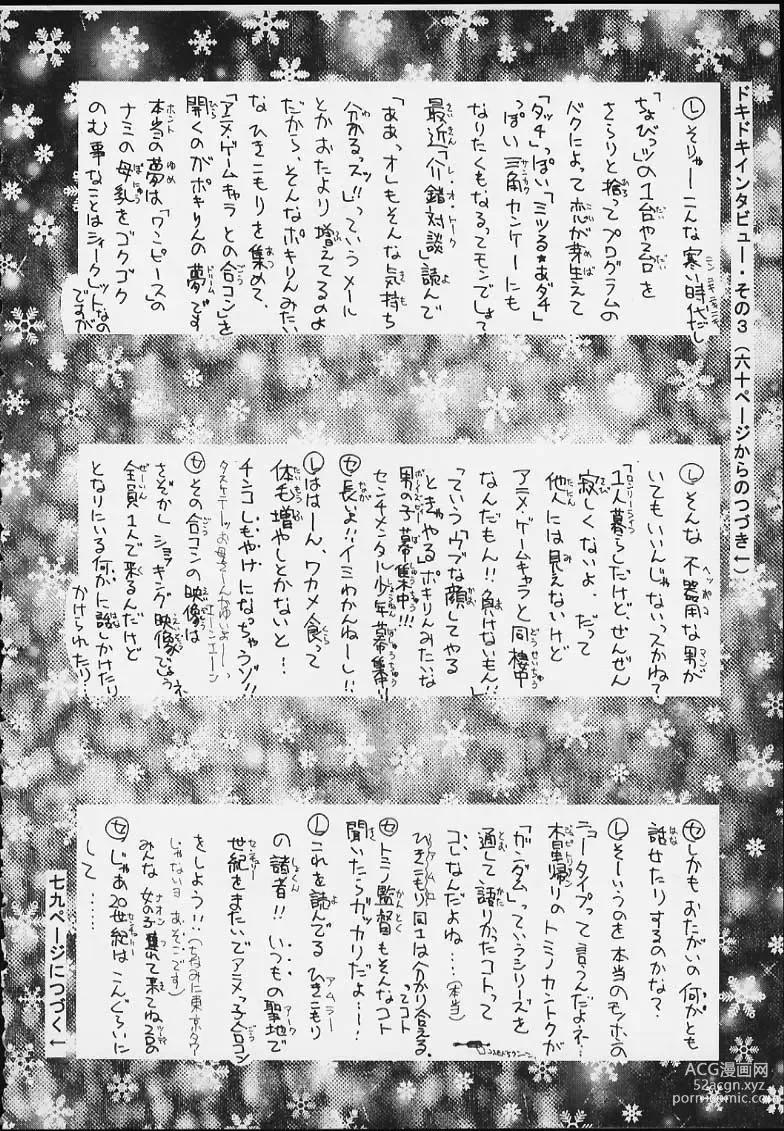 ドキドキインタビュー・その3(六十ページからのつづき←)
Ⓛそりゃーこんな寒い時代だし
「ちょびっツ」の1台や2台を
さらりと捨ってプログラムの
バクによって恋が芽生えて
「タッチ」っぽい「ミツる★あダチ」
っぽい三角カンケーにも
なりたくもなるってモンでしょて
最近「介錯対談」読んで
「ああっオレもそんな気持ち
分かるっスッ!!」っていうメール
とかおたより増えてるのよ
だから、そんなポキりんみたい
なひきこもりを集めて、
「アニメ・ゲームキャラとの合コン」を
開くのがポキりんの夢です
本当の夢は「ワンピース」の
ナミの母乳をゴクゴク
のむ事なことはシィークレットなの
ですが
Ⓛそんな不器用な男が
いてもいいんじゃないっスかね?
「1人暮らしだけど、ぜんぜん
寂しくないよ、だって
他人には見えないけど
アニメ・ゲームキャラと同棲中
なんだもん!!負けないもん!!」
っていう「ウブな顔してやる
ときゃやる」ポキりんみたいな
男の子募集中!!!
センチメンタル少年募集中!!
㋝長いよ!!イミわかんねーし!!
Ⓛははーん、ワカメ食って
体毛増やしとかないと!!
チンコしもやけになっちゃうゾ!!
㋝その合コンの映像は
さぞかしショッキング映像でしょうネ
全員1人で来るんだけど
となりにいる何かに話しかけたり
かけられたり…
㋝しかもおたがいの何かとも
話せたりするのかな?
Ⓛそーいうのを本当のモノホンの
ニュータイプって言うんだよネ…
木星帰りのトミノカントクが
「ガンダム」っていうシリーズを
通して語りたかったコトって
コレなんだよね…(本当)
ひきこもり同士は分かり合える、
ってコト
㋝トミノ監督もそんなコト
聞いたらガッカリだよ…!
Ⓛこれを読んでるひきこもり
の諸者!!いつもの聖地で
世紀をまたいでアニメっ子合コン
をしよう!!(ちなみに東京タワー
じゃないヨあそこです)
みんな女の子連れて来てね2台の
㋝じゃあ20世紀はこんぐらいに
して……
七九ページにつづく←
ACG漫画网
52acgn.xyz
pornmicomic.com